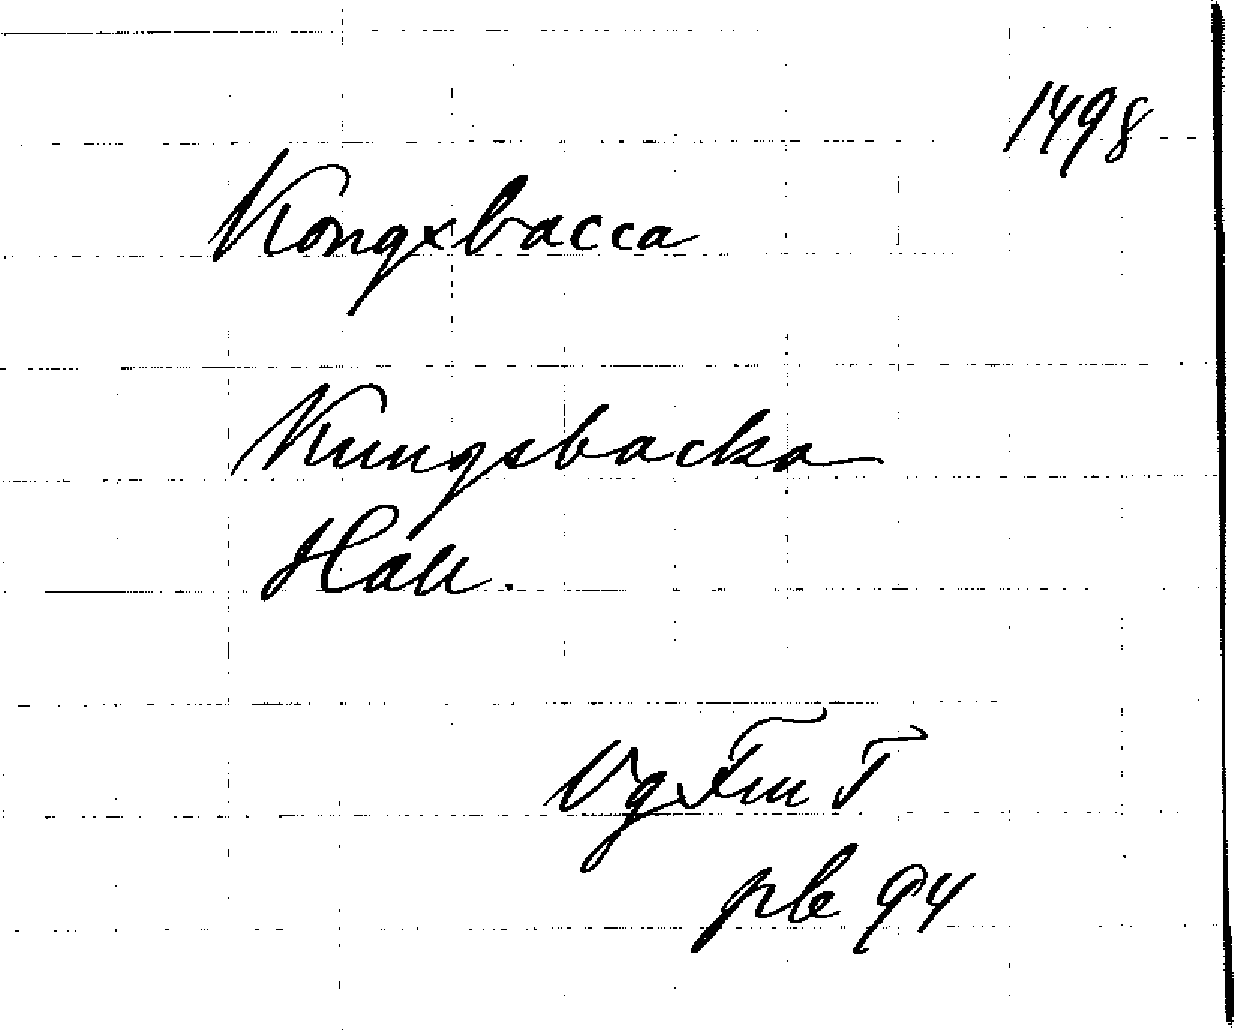 1498
Kongxbacca
Kungsbacka
Hall.
VgFmT
pb 94